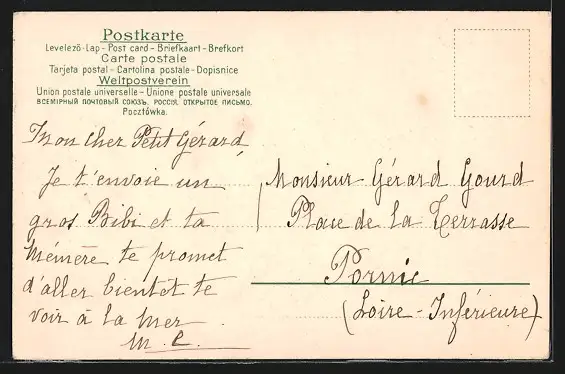 Postkarte
Levelezö-Lap - Post card - Briefkaart - Brefkort
Carte postale
Tarjeta postal - Cartolina postale - Dopisnice
Weltpostverein
Union postale universelle - Unione postale universale
ВСЕМІРНЫЙ ПОЧТОВЫЙ СОЮЗЪ. РОССІЯ. ОТКРЫТОЕ ПИСЬМО.
Pocztówka.
Mon cher Petit Gérard,
Je t'envoie un
gros Bibi et ta
Mémère te promet
d'aller bientet te
voir à la Mer
M. C.
Monsieur Gérard Gourd
Place de la Terrasse
Pornic
(Loire-Inférieure)